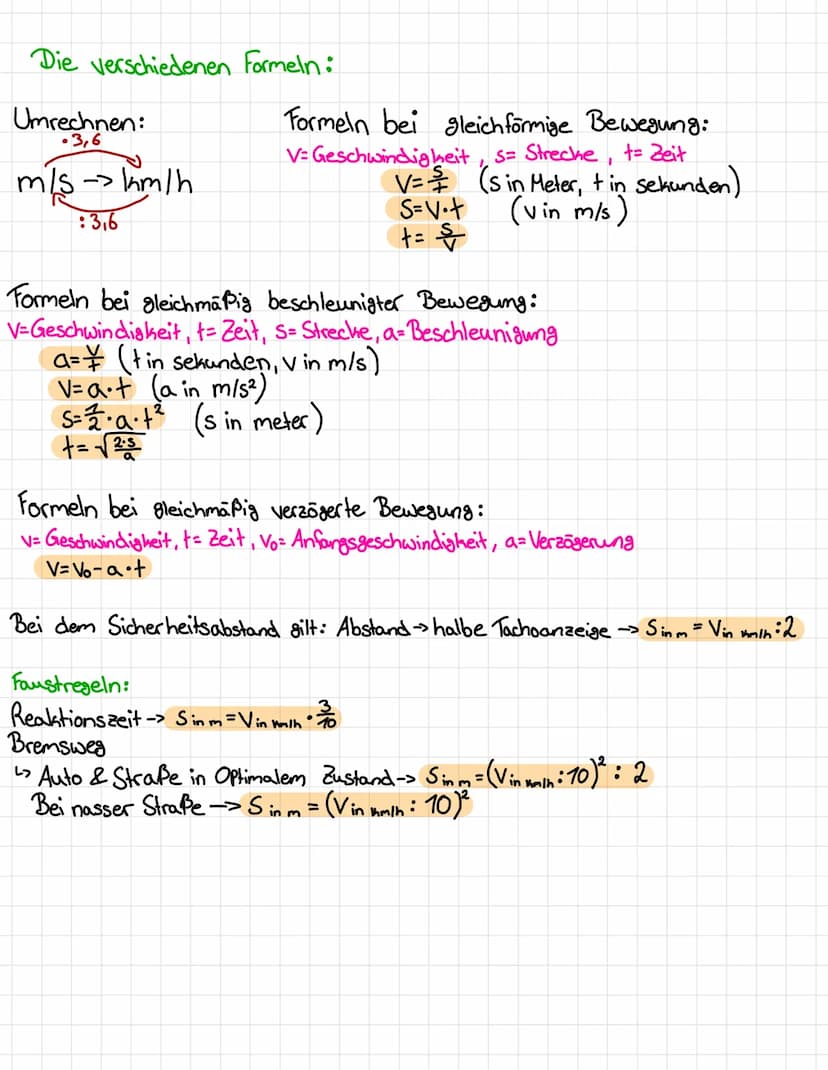 Die verschiedenen Formeln:
Umrechnen:
·3,6
m/s -> km/h
:3,6
Formeln bei gleichförmige Bewegung:
V=Geschwindigkeit, s= Strecke, t= Zeit
V=s/t (s in Meter, t in sekunden)
S=V·t (v in m/s)
t= s/v
Formeln bei gleichmäßig beschleunigter Bewegung:
V=Geschwindigkeit, t= Zeit, s= Strecke, a= Beschleunigung
a=v/t (t in sekunden, v in m/s)
V=a·t (a in m/s²)
S=1/2·a·t² (s in meter)
t=√(2·s/a)
Formeln bei gleichmäßig verzögerte Bewegung:
v= Geschwindigkeit, t= Zeit, V₀= Anfangsgeschwindigkeit, a= Verzögerung
V=V₀-a·t
Bei dem Sicherheitsabstand gilt: Abstand -> halbe Tachoanzeige -> S in m = V in km/h : 2
Faustregeln:
Reaktionszeit -> S in m = V in km/h · 3/10
Bremsweg
↳ Auto & Straße in Optimalem Zustand -> S in m = (V in km/h : 10)² : 2
Bei nasser Straße -> S in m = (V in km/h : 10)²